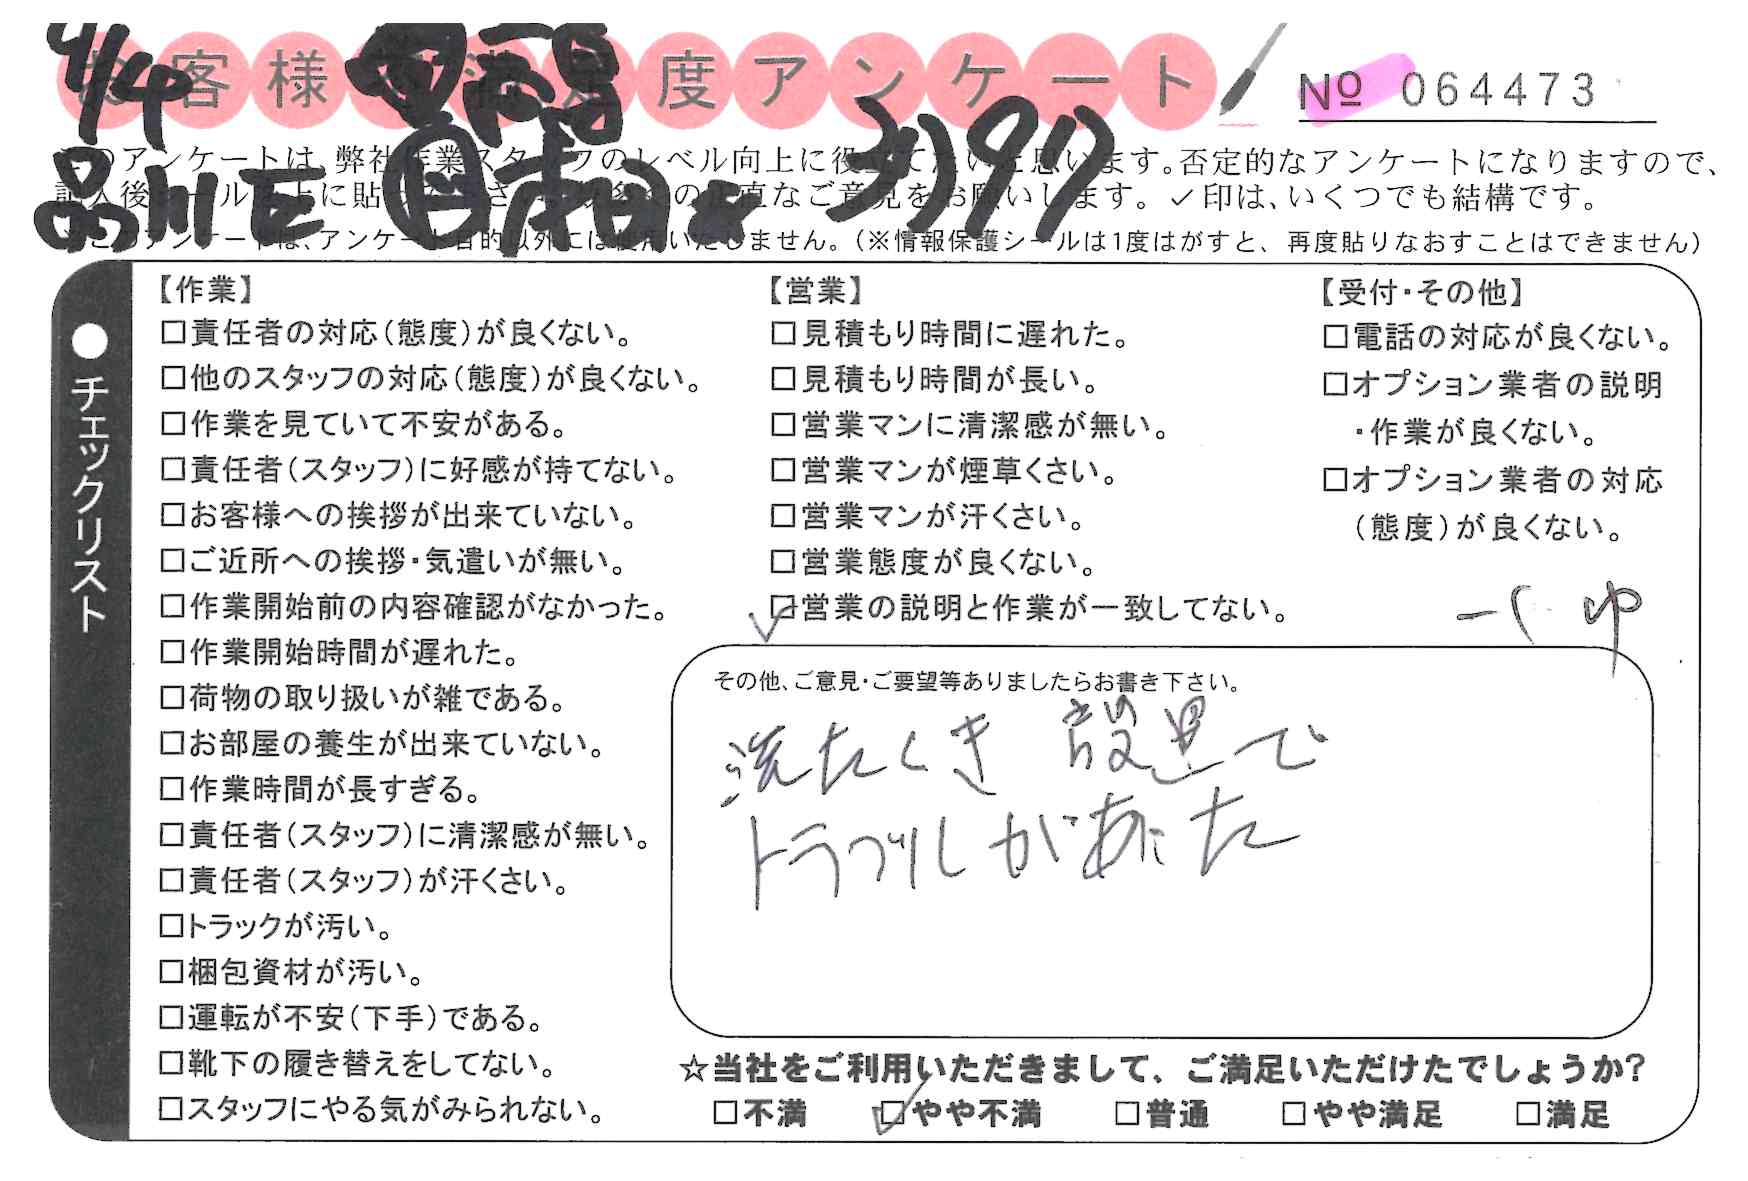 お客様ご満足度アンケート
№ 064473
4/14
品川 3197
このアンケートは、弊社作業スタッフのレベル向上に役立てたいと思います。否定的なアンケートになりますので、
記入後シールを上に貼ってください。お客様の正直なご意見をお願いします。✓印は、いくつでも結構です。
このアンケートは、アンケート目的以外には使用いたしません。（※情報保護シールは1度はがすと、再度貼りなおすことはできません）
●チェックリスト
【作業】
□責任者の対応（態度）が良くない。
□他のスタッフの対応（態度）が良くない。
□作業を見ていて不安がある。
□責任者（スタッフ）に好感が持てない。
□お客様への挨拶が出来ていない。
□ご近所への挨拶・気遣いが無い。
□作業開始前の内容確認がなかった。
□作業開始時間が遅れた。
□荷物の取り扱いが雑である。
□お部屋の養生が出来ていない。
□作業時間が長すぎる。
□責任者（スタッフ）に清潔感が無い。
□責任者（スタッフ）が汗くさい。
□トラックが汚い。
□梱包資材が汚い。
□運転が不安（下手）である。
□靴下の履き替えをしてない。
□スタッフにやる気がみられない。
【営業】
□見積もり時間に遅れた。
□見積もり時間が長い。
□営業マンに清潔感が無い。
□営業マンが煙草くさい。
□営業マンが汗くさい。
□営業態度が良くない。
☑営業の説明と作業が一致してない。
【受付・その他】
□電話の対応が良くない。
□オプション業者の説明
・作業が良くない。
□オプション業者の対応
（態度）が良くない。
その他、ご意見・ご要望等ありましたらお書き下さい。
洗たくき 設置で
トラブルがあった
☆当社をご利用いただきまして、ご満足いただけたでしょうか?
□不満 ☑やや不満 □普通 □やや満足 □満足